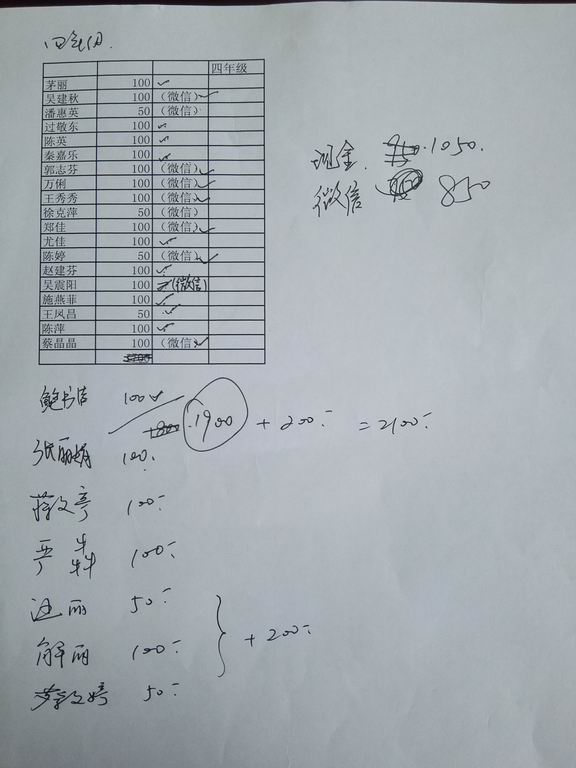 四年级
茅丽 100 ✓
吴建秋 100 （微信）✓
潘惠英 50 （微信）
过敏东 100 ✓
陈英 100 ✓
秦嘉乐 100 ✓
郭志芬 100 （微信）✓
万俐 100 （微信）✓
王秀秀 100 （微信）✓
徐克萍 50 （微信）
郑佳 100 （微信）✓
尤佳 100 ✓
陈婷 50 （微信）✓
赵建芬 100 ✓
吴震阳 100 （微信）
施燕菲 100 ✓
王凤昌 50 ✓
陈萍 100 ✓
蔡晶晶 100 （微信）✓
现金 1050.
微信 850
100 ✓
1900 + 200 = 2100
张丽娟 100
100
严 100
丽 50
解丽 100
+ 200
婷 50